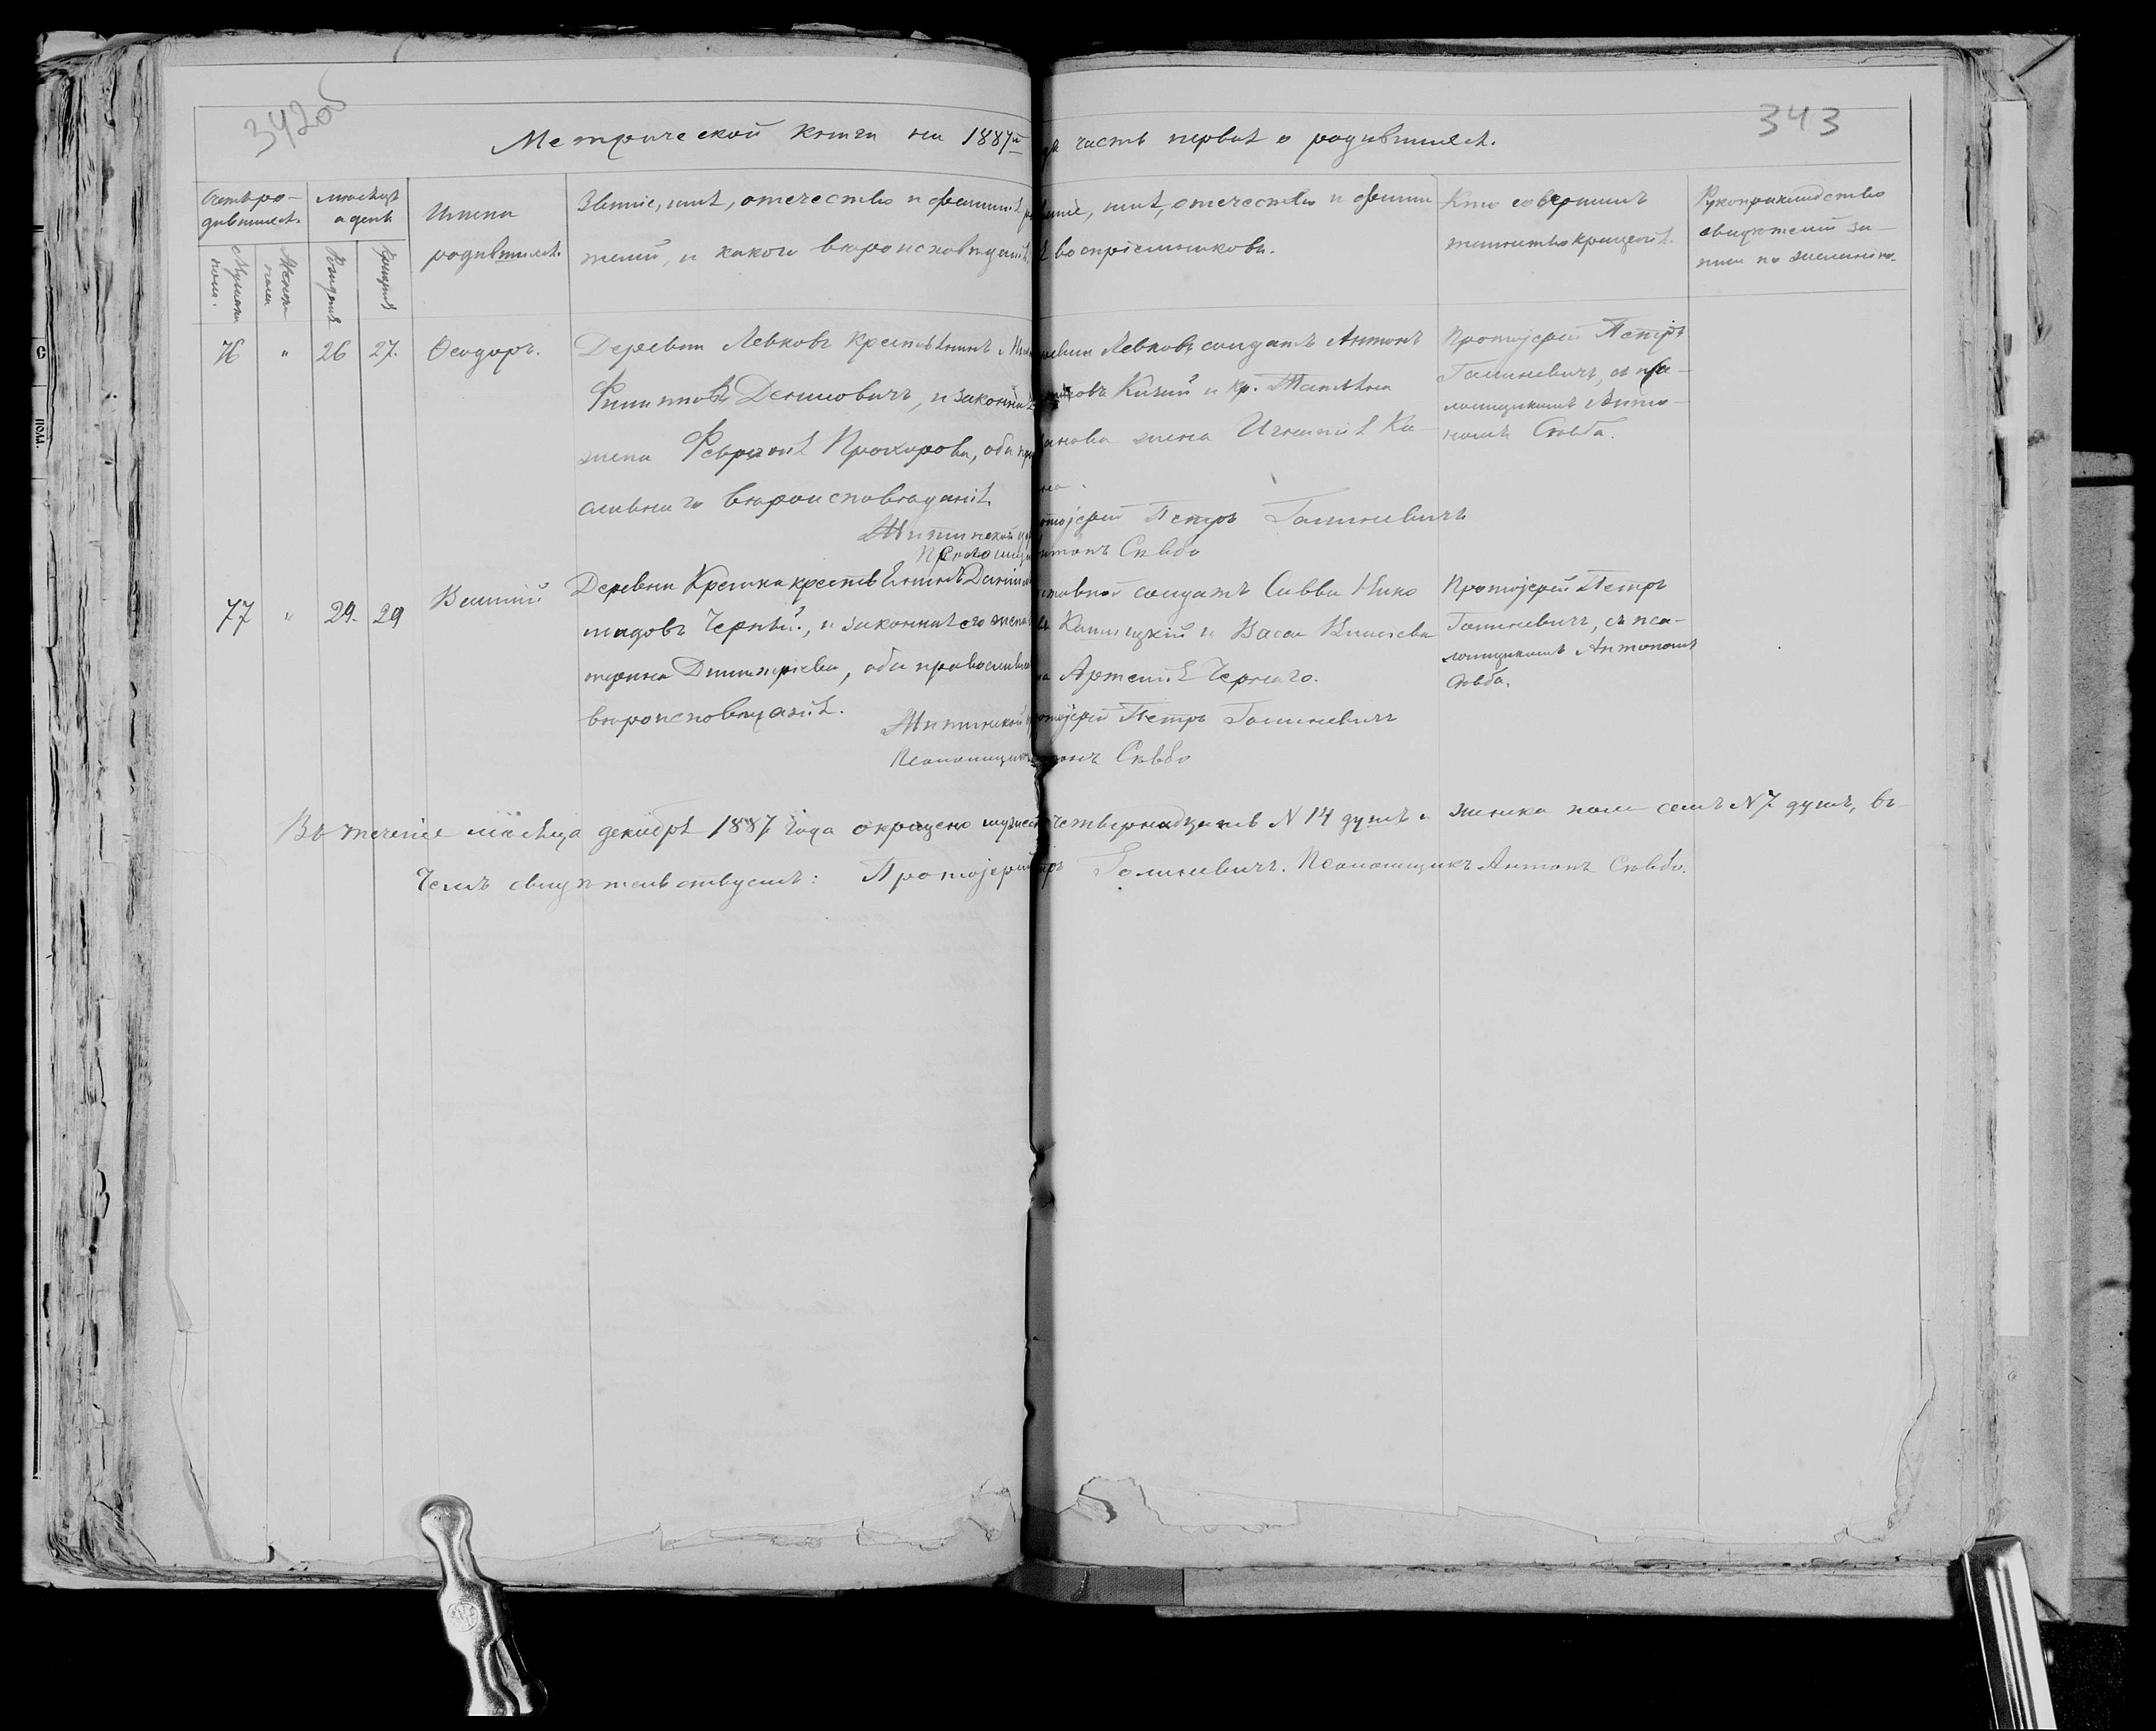 342об
343
Метрической книги на 1887й
да часть первая о родившихся.
Счетъ ро-
дившихся.
Мужска
пола.
Женска
пола
мѣсяцъ
и день
Рожденія
Крещенія
Имена
родившихся.
Званіе, имя, отечество и фамилія ро
телей, и какого вѣроисповѣданія.
званіе, имя, отечество и фамилія
воспріемниковъ.
Кто совершилъ
таинство крещенія.
Рукоприкладство
свидѣтелей за-
писи по желанію.
76 " 26 27. Ѳеодоръ.
Деревни Левковъ крестьянинъ
Филипповъ Денисовичъ, и законная
жена Февронія Прохорова, оба пра
славнаго вѣроисповѣданія.
Левковъ солдатъ Антонъ
Козий и кр. Татьяна
Иванова жена Игнатія Ка-
на.
Протоіерей Петръ
Голиневичъ, съ пса-
ломщикомъ Анто-
номъ Совба.
Протоіерей Петръ Голиневичъ
Антонъ Совба
77 " 29. 29 Василий
Деревни Кремна крестьянинъ Даниилъ
мидовъ Черный, и законная его жена
терина Димитріева, оба православнаго
вѣроисповѣданія.
отставной солдатъ Савва Нико
Калицкій и Васса Власіева
на Артемія Чернаго.
Протоіерей Петръ
Голиневичъ, съ пса-
ломщикомъ Антономъ
Совба.
Протоіерей Петръ Голиневичъ
Псаломщикъ Антонъ Совба
Въ теченіе мѣсяца декабря 1887 года окрещено мужска четырнадцать N 14 душъ и женска пола семь N 7 душъ, въ
чемъ свидѣтельствуемъ: Протоіерей Петръ Голиневичъ. Псаломщикъ Антонъ Совба.